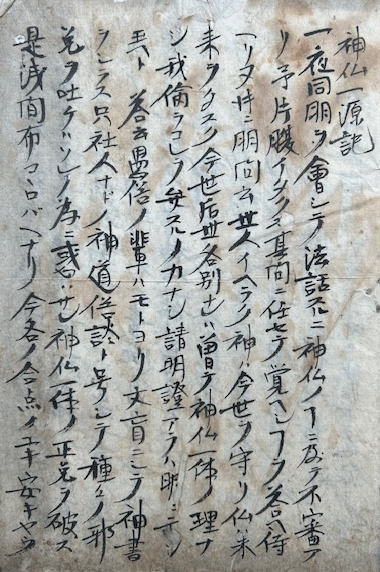 神仏一源記
一夜同朋ヲ會シテ法話スルニ神仏ノヿニ及テ不審ア
リ予片腹イタクモ其問ニ任セテ覚ヘシヿヲ答ヘ侍
ヘリ又时ニ朋問云世人イヘラク神ハ今世ヲ守リ仏ハ未
来ヲタスク今世后世各別ナレハ曽テ神仏一体ノ理ナ
シ我倫ラコレヲ弁スルノカナシ請明證アラハ明ニ示シ
玉ヘト 答云愚俗ノ輩ハモトヨリ文盲ニシテ神書
ヲシラス只社人ナドノ神道俗談ト号シテ種々ノ邪
見ヲ吐ケリソレカ為ニ惑ワサレ神仏一体ノ正見ヲ破ス
是浅間布コヽロバヘナリ今各ノ合点ノユキ安キヤウ